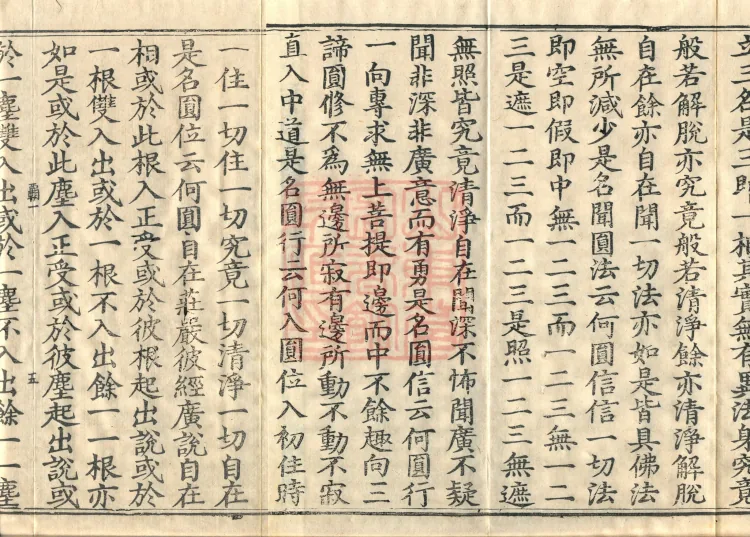 立三名是三即一相其實無有異法身究竟
般若解脫亦究竟般若清淨餘亦清淨解脫
自在餘亦自在聞一切法亦如是皆具佛法
無所減少是名聞圓法云何圓信信一切法
即空即假即中無一二三而一二三無一二
三是遮一二三而一二三是照一二三無遮
無照皆究竟清淨自在聞深不怖聞廣不疑
聞非深非廣意而有勇是名圓信云何圓行
一向專求無上菩提即邊而中不餘趣向三
諦圓修不為無邊所寂有邊所動不動不寂
直入中道是名圓行云何入圓位入初住時
一住一切住一切究竟一切清淨一切自在
是名圓位云何圓自在莊嚴彼經廣說自在
相或於此根入正受或於彼根起出說或於
一根雙入出或於一根不入出餘一一根亦
如是或於此塵入正受或於彼塵起出說或
於一塵雙入出或於一塵不入出餘一一塵
五